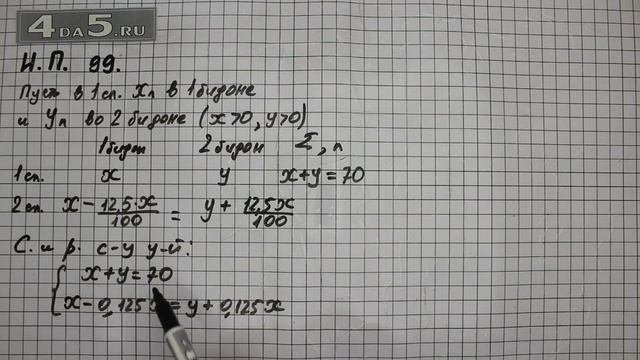 4DA5.RU
Н.П. 99.
Пусть в 1 сп. x л в 1 бидоне
и y л во 2 бидоне (x>0, y>0)
1 бидон 2 бидон Σ, л
1 сп. x y x+y=70
2 сп. x - 12,5·x/100 = y + 12,5x/100
С. и р. с-у у-й:
{ x+y=70
x-0,125x=y+0,125x